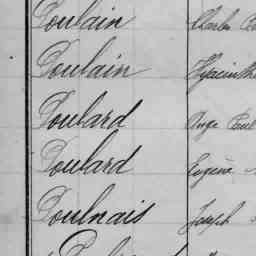 Poulain
Poulain Hyacinthe
Poulard Ange Paul
Poulard Eugène
Poulnais Joseph